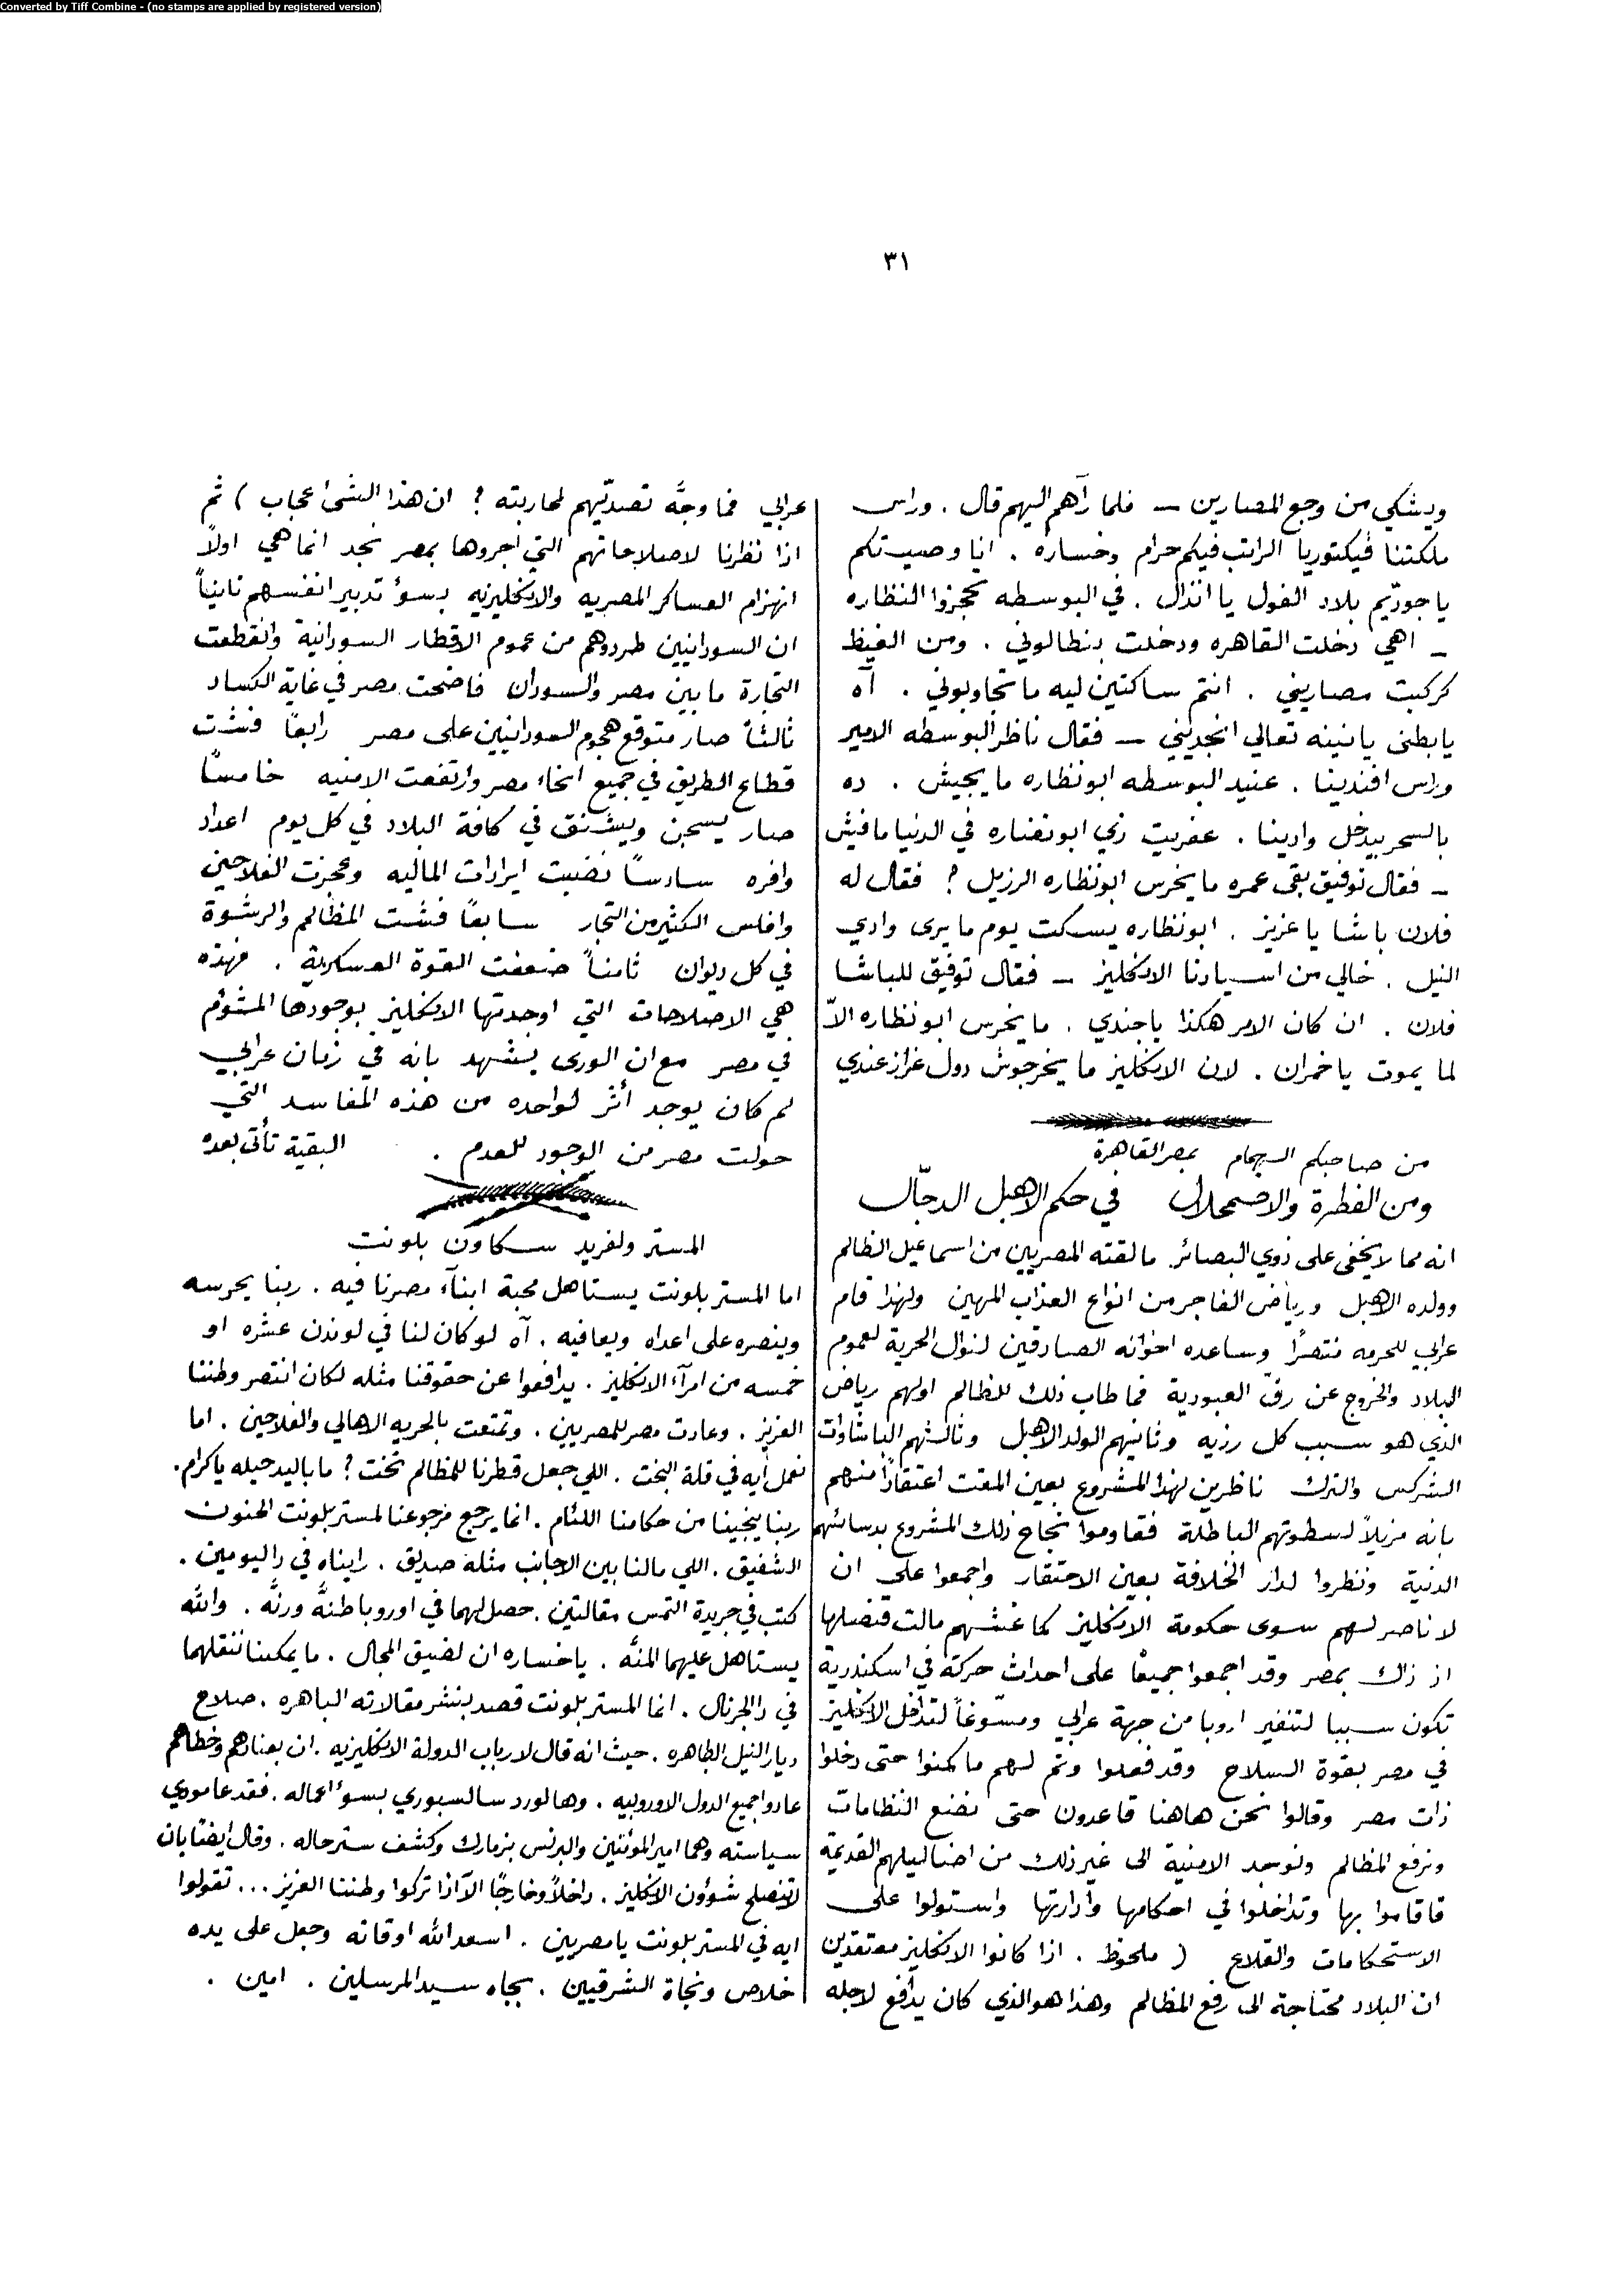 Converted by Tiff Combine - (no stamps are applied by registered version)
٣١
ويشكي من وجع المصارين — فلما رآهم اليهم قال . وراس
ملكتنا ڤيكتوريا الراتب فيكم حرام وخساره . انا وصيتكم
ياجوديّم بلاد الفول يا انذال . في البوسطه تحجزوا النظاره
— اهي دخلت القاهره ودخلت بنطالوني . ومن الغيظ
كركبت مصاريني . انتم ساكتين ليه ما تجاوبوني . آه
يابطنى يا نينه تعالي انجديني — فقال ناظر البوسطه الامير
وراس افندينا . عنيد البوسطه ابو نظاره ما يجيش . ده
بالسحر بيدخل وادينا . عفريت زي ابو نضاره في الدنيا مافيش
— فقال توفيق بقى عمره ما يخرس ابو نظاره الرزيل ? فقال له
فلان باشا يا عزيز . ابو نظاره يسكت يوم ما يرى وادي
النيل . خالي من اسيادنا الانكليز — فقال توفيق للباشا
فلان . ان كان الامر هكذا ياجندي . ما يخرس ابو نظاره الاّ
لما يموت ياخمران . لان الانكليز ما يخرجوش دول عزاز عندي
من صاحبكم السهام بمصر القاهرة
ومن الفطرة والاضمحلال في حكم الاهبل الدجّال
انه مما لا يخفى على ذوي البصائر ما لقته المصريين من اسماعيل الظالم
وولده الاهبل ورياض الفاجر من انواع العذاب المهين ولهذا قام
عرابي للحرمه منتصرًا وساعده اخوانه الصادقين لنوال الحرية لعموم
البلاد والخروج عن رقّ العبودية فما طاب ذلك للظالم اولهم رياض
الذي هو سبب كل رزيه وثانيهم الولد الاهبل وثالثهم الباشاوات
الشركس والترك ناظرين لهذا المشروع بعين المقت اعتقادًا منهم
بانه مزيلاً لسطوتهم الباطلة فقاوموا نجاح ذلك المشروع بدسائسهم
الدنية ونظروا لدار الخلافة بعين الاحتقار واجمعوا على ان
لا ناصر لهم سوى حكومة الانكليز كما غشهم مالت قنصلها
اذ ذاك بمصر وقد اجمعوا جميعًا على احداث حركة في اسكندرية
تكون سببا لتنفير اروبا من جهة عرابي ومسوّغاً لتداخل الانكليز
في مصر بقوة السلاح وقد فعلوا وتم لهم ما كمنوا حتى دخلوا
ذات مصر وقالوا نحن هاهنا قاعدون حتى نضع النظامات
ونرفع المظالم ونوجد الامنية الى غير ذلك من اضاليلهم القديمة
فاقاموا بها وتداخلوا في احكامها وادارتها واستولوا على
الاستحكامات والقلاع ( ملحوظ . اذا كانوا الانكليز معتقدين
ان البلاد محتاجة الى رفع المظالم وهذا هو الذي كان يدافع لاجله
عرابي فما وجهَّ تصديّهم لمحاربته ? ان هذا الشئ عجاب ) ثم
اذا نظرنا لاصلاحاتهم التي اجروها بمصر نجد انما هي اولاً
انهزام العساكر المصريه والانكليزيه بسؤ تدبير انفسهم ثانياً
ان السودانيين طردوهم من عموم الاقطار السودانية وانقطعت
التجارة ما بين مصر والسودان فاضحت مصر في غاية الكساد
ثالثاً صار متوقع هجوم السودانيين على مصر رابعًا فشت
قطاع الطريق في جميع انحاء مصر وارتفعت الامنيه خامسًا
صار يسجن ويشنق في كافة البلاد في كل يوم اعداد
وافره سادسًا نضبت ايرادات الماليه وعجزت الفلاحين
وافلس الكثير من التجار سابعًا فشت المظالم والرشوة
في كل ديوان ثامناً ضعفت القوة العسكرية . فهذه
هي الاصلاحات التي اوجدتها الانكليز بوجودها المشؤم
في مصر مع ان الورى يشهد بانه في زمان عرابي
لم كان يوجد أثر لواحده من هذه المفاسد التي
حولت مصر من الوجود للعدم . البقية تأتى بعده
المستر ولفريد سكاون بلونت
اما المستر بلونت يستاهل محبة ابنآء مصرنا فيه . ربنا يحرسه
وينصره على اعداه ويعافيه . آه لو كان لنا في لوندن عشره او
خمسه من امرآء الانكليز . يدافعوا عن حقوقنا مثله لكان انتصر وطننا
العزيز . وعادت مصر للمصريين . وتمتعت بالحريه الاهالي والفلاحين . اما
نعمل أيه في قلة البخت . اللي جعل قطرنا للمظالم تخت ? ما باليد حيله يا كرام .
ربنا ينجينا من حكامنا اللئام . انما يرجع مرجوعنا لمستر بلونت الحنون
الشفيق . اللي مالنا بين الاجانب مثله صديق . رايناه في دا اليومين .
كتب في جريدة التمس مقالتين . حصل لهما في اوروبا طنهَّ ورنهَّ . والله
يستاهل عليهما المنّه . ياخساره ان لضيق المجال . ما يمكننا ننقلهما
في دا الجرنال . انما المستر بلونت قصد بنشر مقالاته الباهره . صلاح
ديار النيل الطاهره . حيث انه قال لارباب الدولة الانكليزيه . ان بعنادهم وخطاهم
عادوا جميع الدول الاوروبيه . وها لورد سالسبوري بسؤ اعماله . فقد عامودي
سياسته وهما امير المؤمنين والبرنس بزمارك وكشف ستر حاله . وقال ايضًا بان
لا تنصلح شؤون الانكليز . داخلاً وخارجًا الآ اذا تركوا وطننا العزيز ... تقولوا
ايه في المستر بلونت يا مصريين . اسعد الله اوقاته وجعل على يده
خلاص ونجاة الشرقيين . بجاه سيد المرسلين . امين .